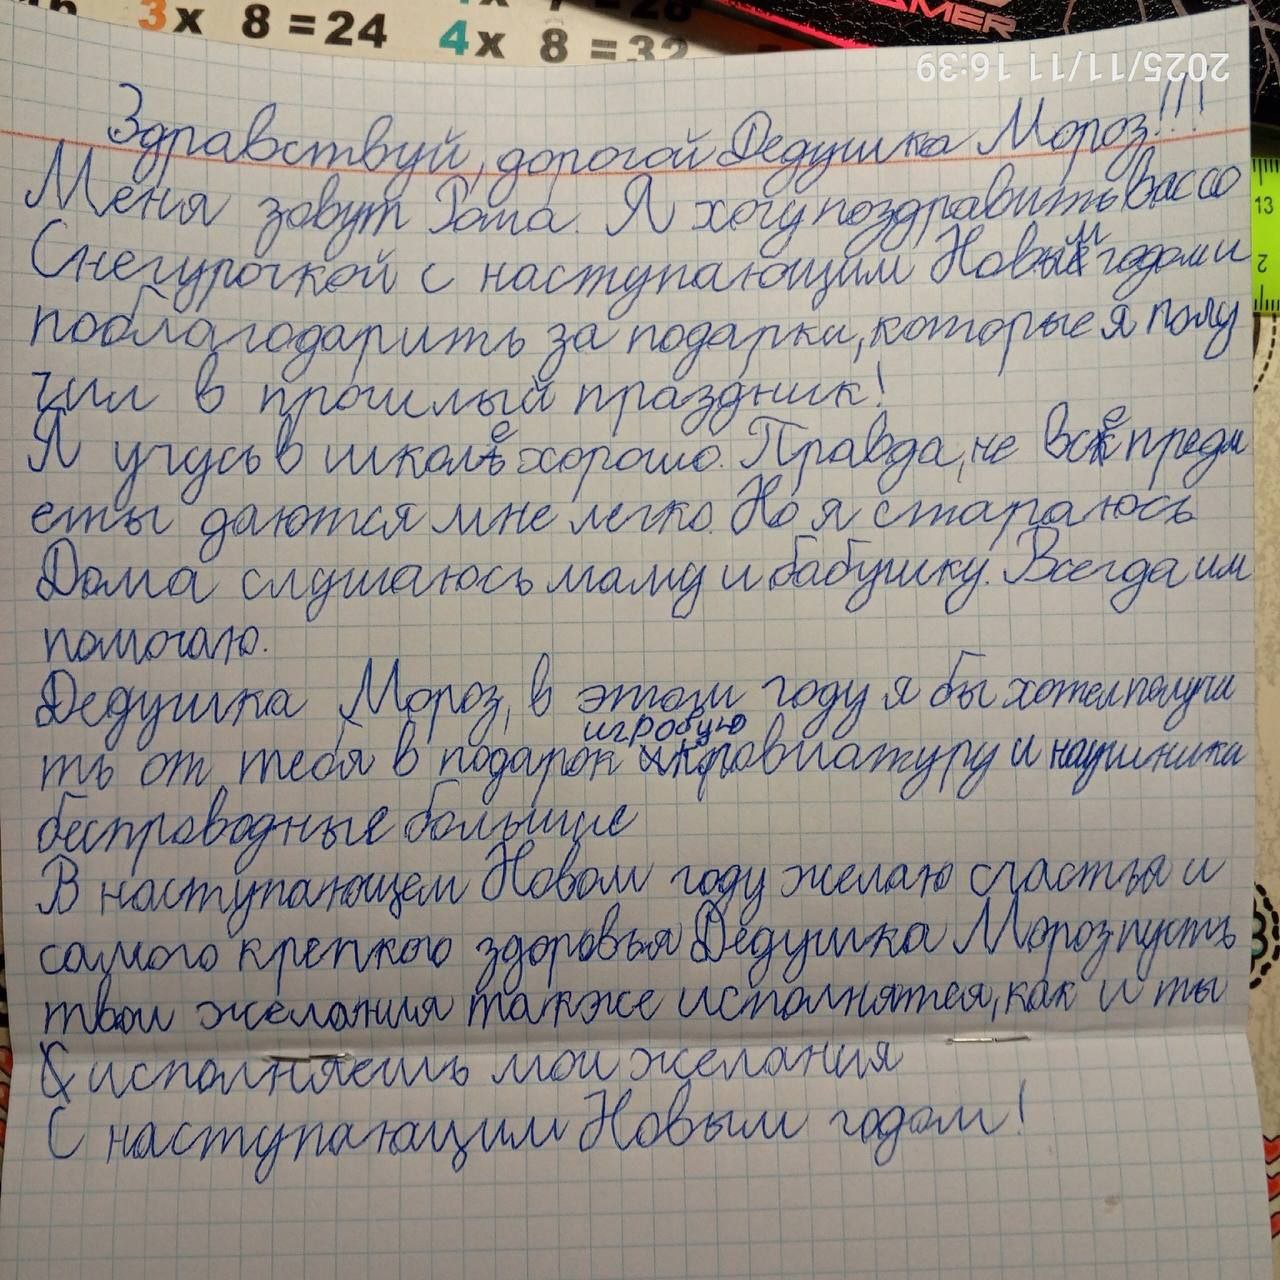 3x 8=24
4x 8=32
GAMER
2025/11/11 16:39
Здравствуй, дорогой Дедушка Мороз!!!
Меня зовут Рома. Я хочу поздравить Вас со
Снегурочкой с наступающим Новым годом и
поблагодарить за подарки, которые я полу
чил в прошлый праздник!
Я учусь в школе хорошо. Правда, не все предм
еты даются мне легко. Но я стараюсь
Дома слушаюсь маму и бабушку. Всегда им
помогаю.
Дедушка Мороз, в этом году я бы хотел получи
игровую
ть от тебя в подарок клавиатуру и наушники
беспроводные большие
В наступающем Новом году желаю счастья и
самого крепкого здоровья Дедушка Мороз пусть
твои желания также исполнятся, как и ты
исполняешь мои желания
С наступающим Новым годом!
13
2